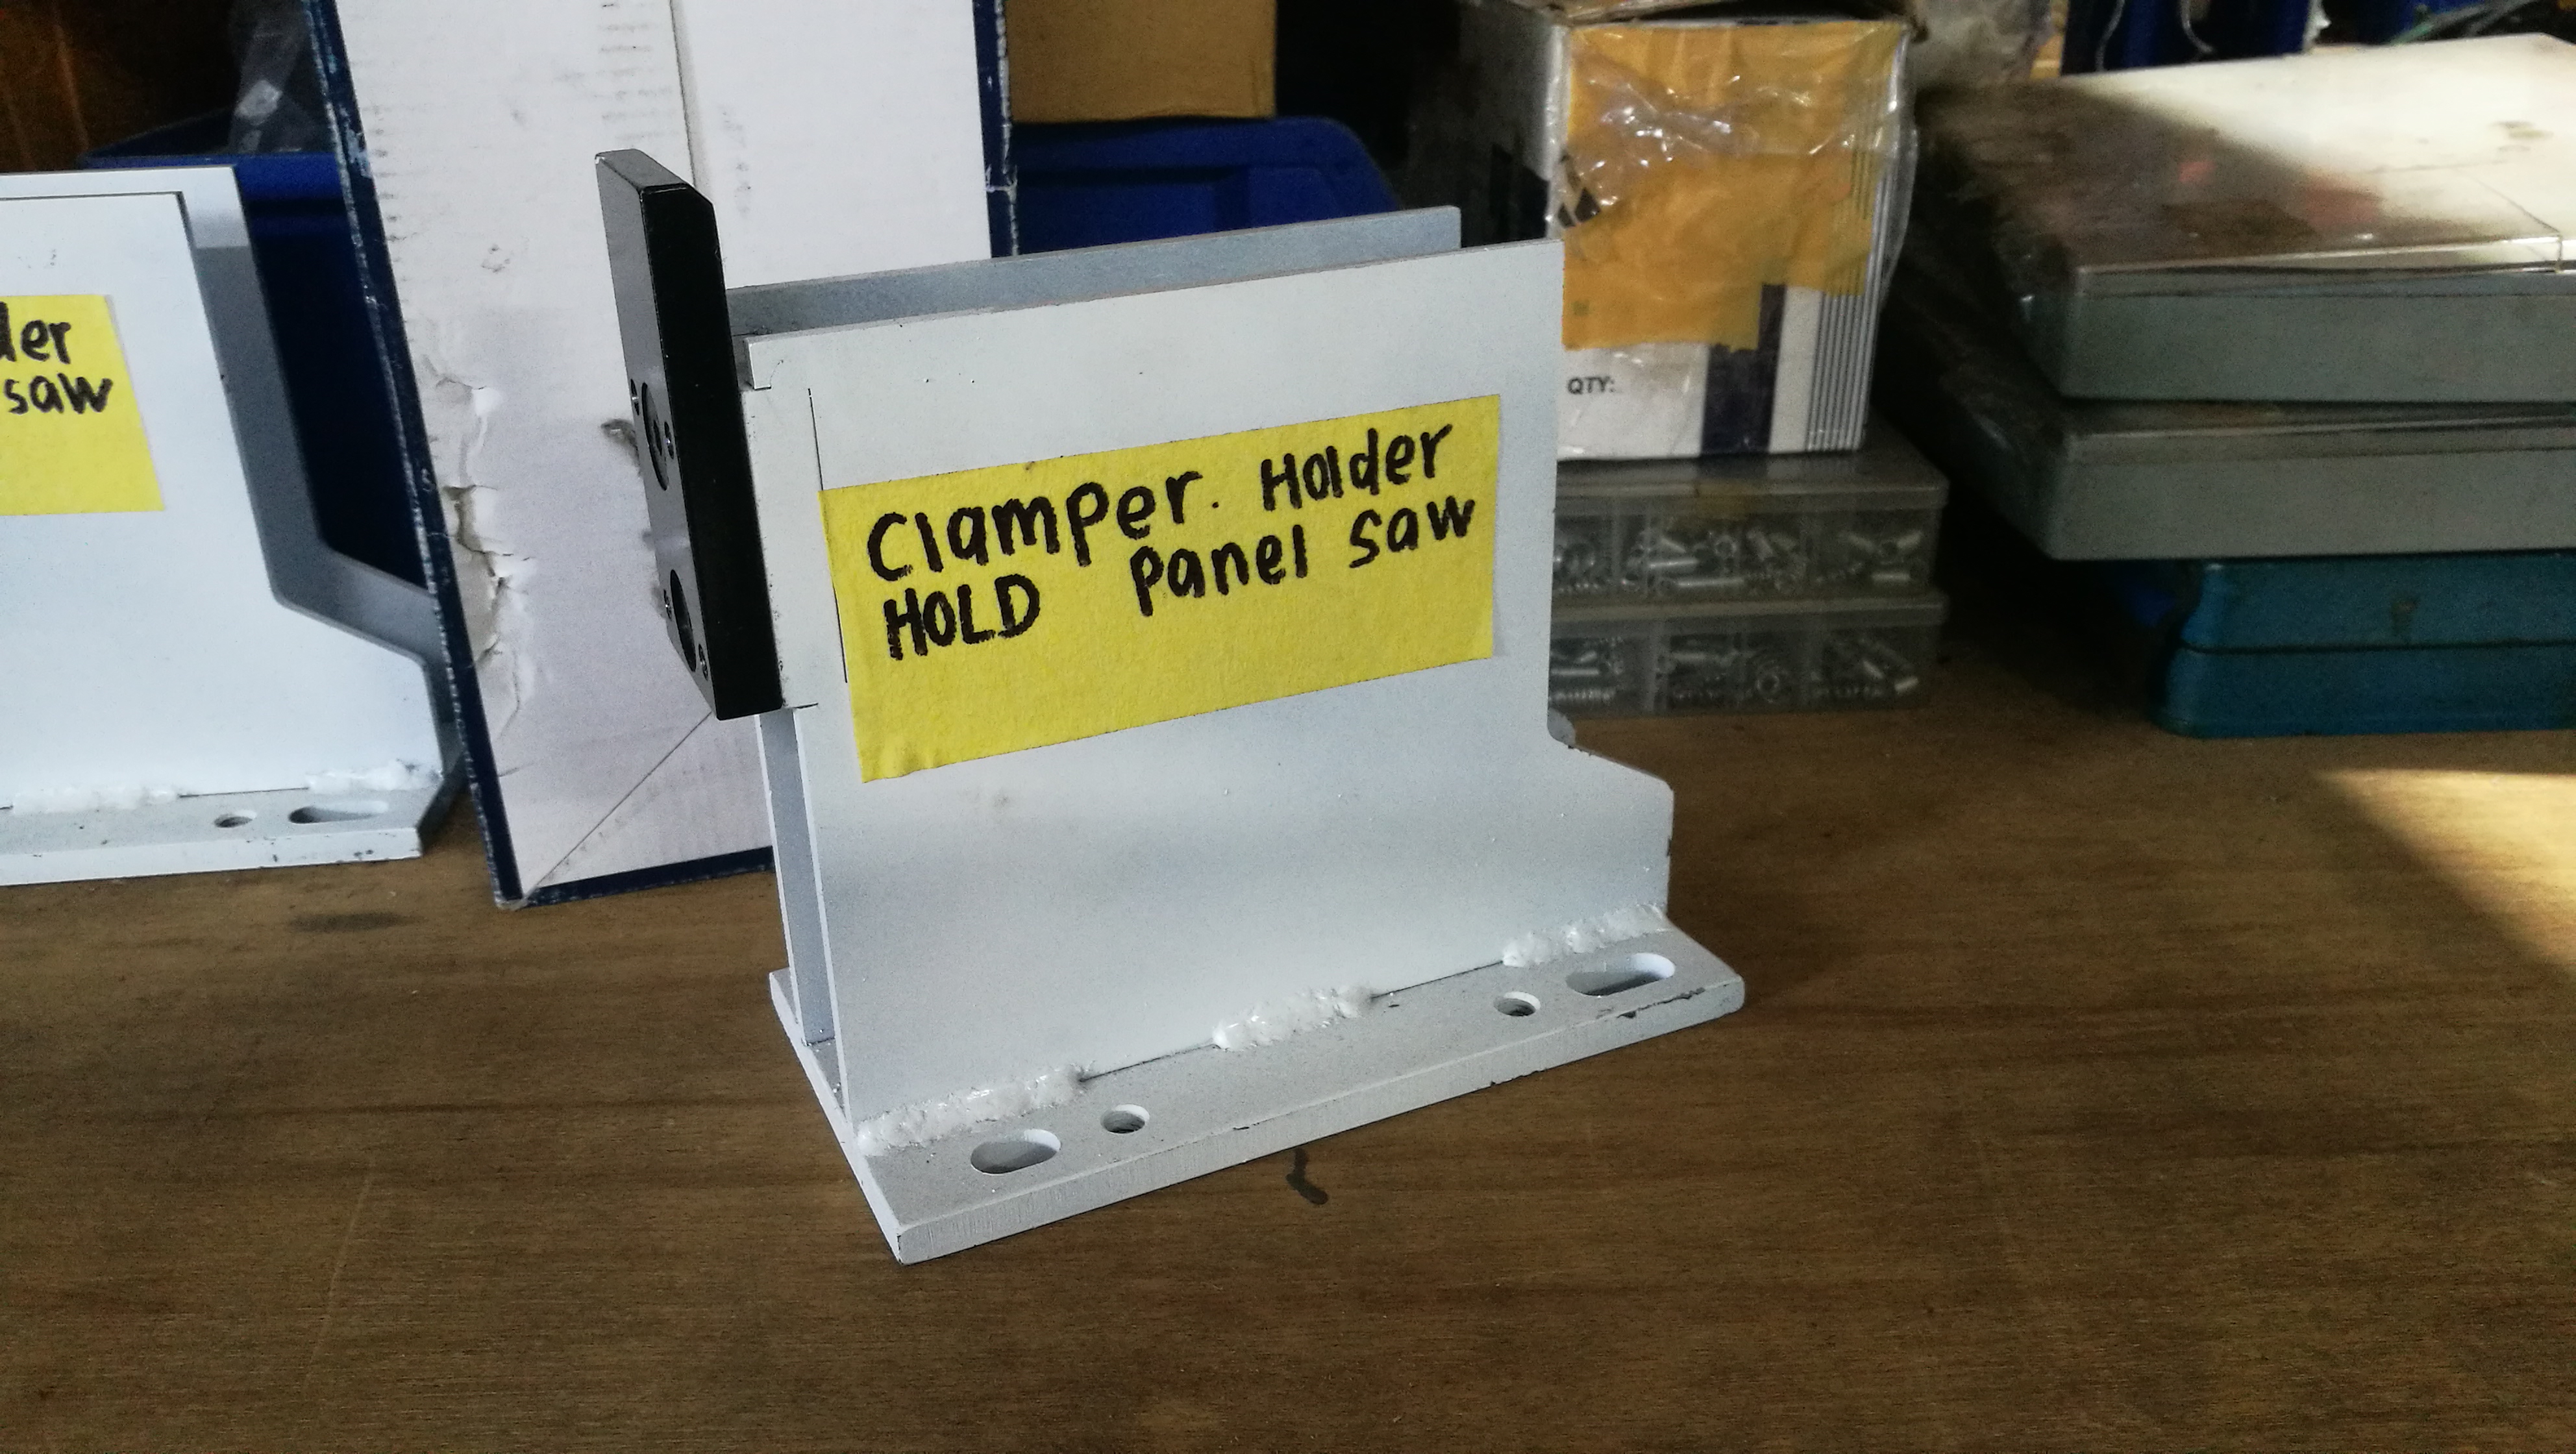 der
saw
Clamper. Holder
HOLD panel saw
QTY: